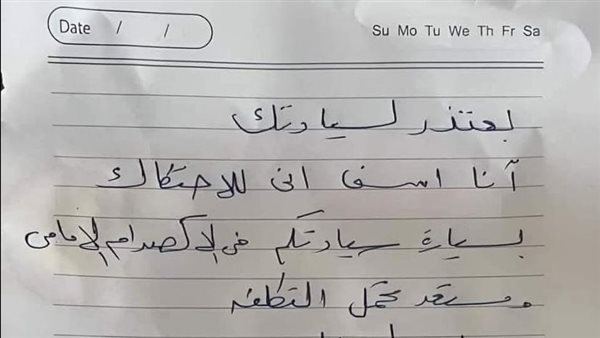 Date / /
Su Mo Tu We Th Fr Sa
بعتذر لسيادتك
أنا اسف انى للاحتكاك
بسيارة سيادتكم فى الإكصدام الإمامى
ومستعد تحمل التكلفه